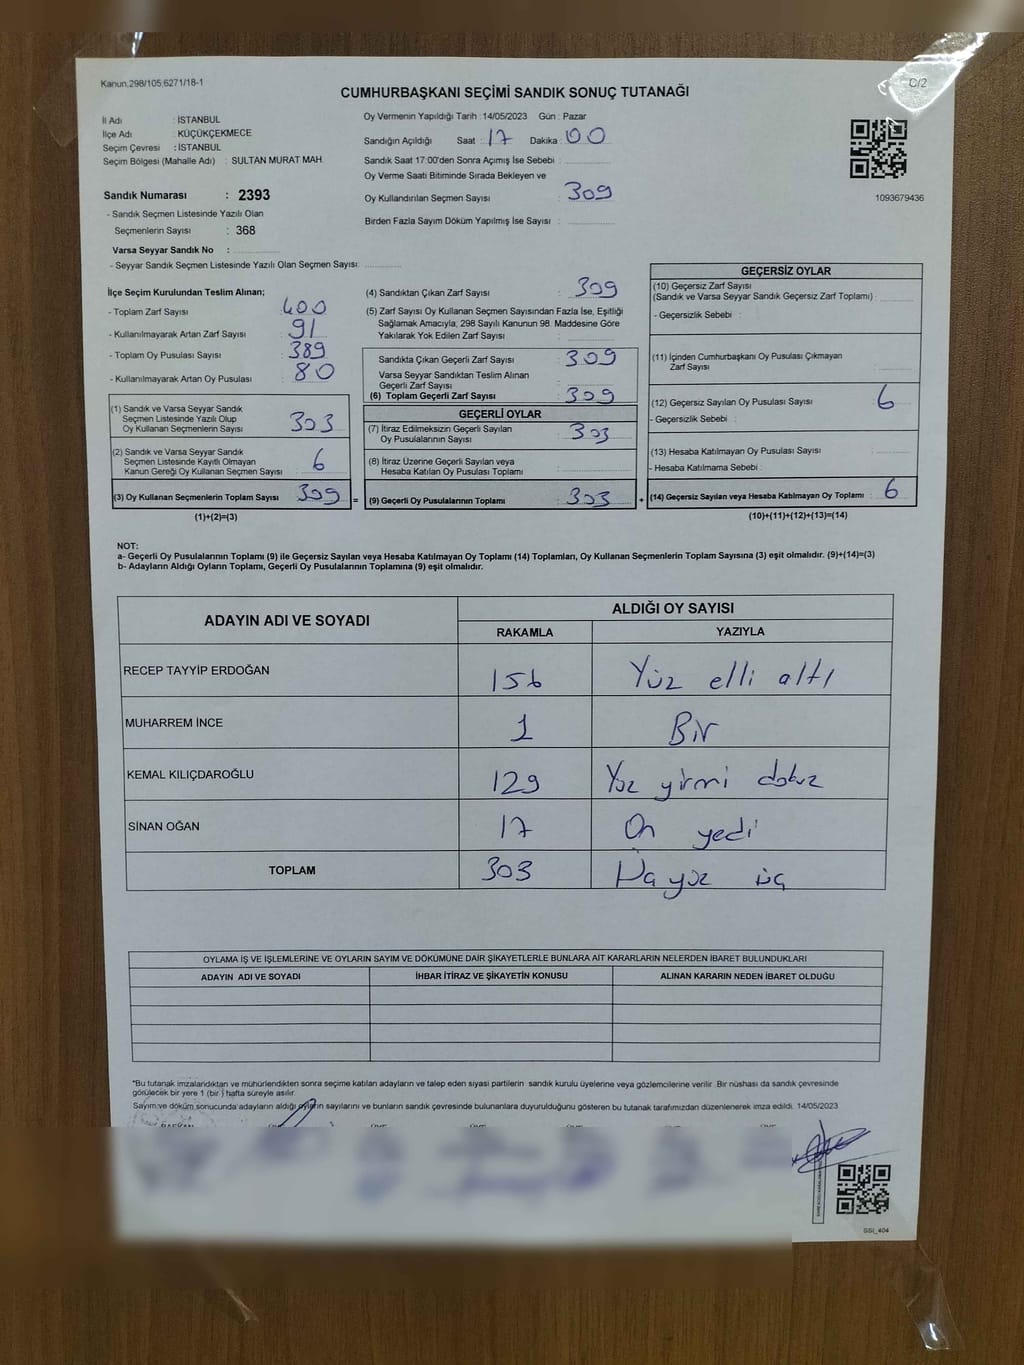 Kanun,298/105,6271/18-1
C/2
CUMHURBAŞKANI SEÇİMİ SANDIK SONUÇ TUTANAĞI
İl Adı : İSTANBUL
İlçe Adı : KÜÇÜKÇEKMECE
Seçim Çevresi : İSTANBUL
Seçim Bölgesi (Mahalle Adı) : SULTAN MURAT MAH.
Sandık Numarası : 2393
- Sandık Seçmen Listesinde Yazılı Olan
Seçmenlerin Sayısı : 368
Varsa Seyyar Sandık No :
- Seyyar Sandık Seçmen Listesinde Yazılı Olan Seçmen Sayısı:
Oy Vermenin Yapıldığı Tarih : 14/05/2023 Gün : Pazar
Sandığın Açıldığı Saat : 17 Dakika : 00
Sandık Saat 17:00'den Sonra Açımış İse Sebebi :
Oy Verme Saati Bitiminde Sırada Bekleyen ve
Oy Kullandırılan Seçmen Sayısı : 309
Birden Fazla Sayım Döküm Yapılmış İse Sayısı :
1093679436
İlçe Seçim Kurulundan Teslim Alınan;
- Toplam Zarf Sayısı : 400
- Kullanılmayarak Artan Zarf Sayısı : 91
- Toplam Oy Pusulası Sayısı : 389
- Kullanılmayarak Artan Oy Pusulası : 80
(1) Sandık ve Varsa Seyyar Sandık
Seçmen Listesinde Yazılı Olup
Oy Kullanan Seçmenlerin Sayısı : 303
(2) Sandık ve Varsa Seyyar Sandık
Seçmen Listesinde Kayıtlı Olmayan
Kanun Gereği Oy Kullanan Seçmen Sayısı : 6
(3) Oy Kullanan Seçmenlerin Toplam Sayısı : 309 =
(1)+(2)=(3)
(4) Sandıktan Çıkan Zarf Sayısı : 309
(5) Zarf Sayısı Oy Kullanan Seçmen Sayısından Fazla İse, Eşitliği
Sağlamak Amacıyla; 298 Sayılı Kanunun 98. Maddesine Göre
Yakılarak Yok Edilen Zarf Sayısı :
Sandıkta Çıkan Geçerli Zarf Sayısı : 309
Varsa Seyyar Sandıktan Teslim Alınan
Geçerli Zarf Sayısı :
(6) Toplam Geçerli Zarf Sayısı : 309
GEÇERLİ OYLAR
(7) İtiraz Edilmeksizin Geçerli Sayılan
Oy Pusulalarının Sayısı : 303
(8) İtiraz Üzerine Geçerli Sayılan veya
Hesaba Katılan Oy Pusulası Toplamı :
(9) Geçerli Oy Pusulalarının Toplamı : 303 +
GEÇERSİZ OYLAR
(10) Geçersiz Zarf Sayısı
(Sandık ve Varsa Seyyar Sandık Geçersiz Zarf Toplamı) :
- Geçersizlik Sebebi :
(11) İçinden Cumhurbaşkanı Oy Pusulası Çıkmayan
Zarf Sayısı :
(12) Geçersiz Sayılan Oy Pusulası Sayısı : 6
- Geçersizlik Sebebi :
(13) Hesaba Katılmayan Oy Pusulası Sayısı :
- Hesaba Katılmama Sebebi :
(14) Geçersiz Sayılan veya Hesaba Katılmayan Oy Toplamı : 6
(10)+(11)+(12)+(13)=(14)
NOT:
a- Geçerli Oy Pusulalarının Toplamı (9) ile Geçersiz Sayılan veya Hesaba Katılmayan Oy Toplamı (14) Toplamları, Oy Kullanan Seçmenlerin Toplam Sayısına (3) eşit olmalıdır. (9)+(14)=(3)
b- Adayların Aldığı Oyların Toplamı, Geçerli Oy Pusulalarının Toplamına (9) eşit olmalıdır.
ADAYIN ADI VE SOYADI ALDIĞI OY SAYISI
RAKAMLA YAZIYLA
RECEP TAYYİP ERDOĞAN 156 Yüz elli altı
MUHARREM İNCE 1 Bir
KEMAL KILIÇDAROĞLU 129 Yüz yirmi dokuz
SİNAN OĞAN 17 On yedi
TOPLAM 303 yüz üç
OYLAMA İŞ VE İŞLEMLERİNE VE OYLARIN SAYIM VE DÖKÜMÜNE DAİR ŞİKAYETLERLE BUNLARA AİT KARARLARIN NELERDEN İBARET BULUNDUKLARI
ADAYIN ADI VE SOYADI İHBAR İTİRAZ VE ŞİKAYETİN KONUSU ALINAN KARARIN NEDEN İBARET OLDUĞU
"Bu tutanak imzalandıktan ve mühürlendikten sonra seçime katılan adayların ve talep eden siyasi partilerin sandık kurulu üyelerine veya gözlemcilerine verilir. Bir nüshası da sandık çevresinde
görülecek bir yere 1 (bir ) hafta süreyle asılır.
Sayım ve döküm sonucunda adayların aldığı oyların sayılarını ve bunların sandık çevresinde bulunanlara duyurulduğunu gösteren bu tutanak tarafımızdan düzenlenerek imza edildi. 14/05/2023
SSI_404